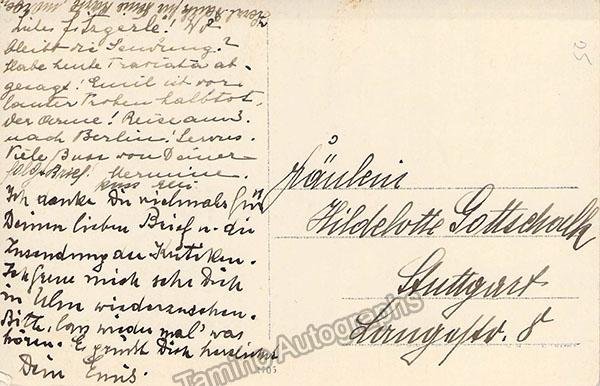 Herzl. Dank für Deine Karte
Liebes Herzgerle! Wo
bleibt die Sendung?
Habe heute Traviata ab-
gesagt! Emil ist vor
lauter Proben halbtot,
der Arme! Reise am 3.
nach Berlin! Servus.
Viele Bussi von Deiner
folgt Brief. Hermine.
Kuss
Ich danke Dir vielmals für
Deinen lieben Brief u. die
Zusendung der Kritiken.
Ich freue mich sehr Dich
in Ulm wiederzusehen.
Bitte, lass wieder mal was
hören. Es grüsst Dich herzlichst
Dein
Fräulein
Hildelotte Gottschalk
Stuttgart
Langestr. 8
25
Tamino Autographs